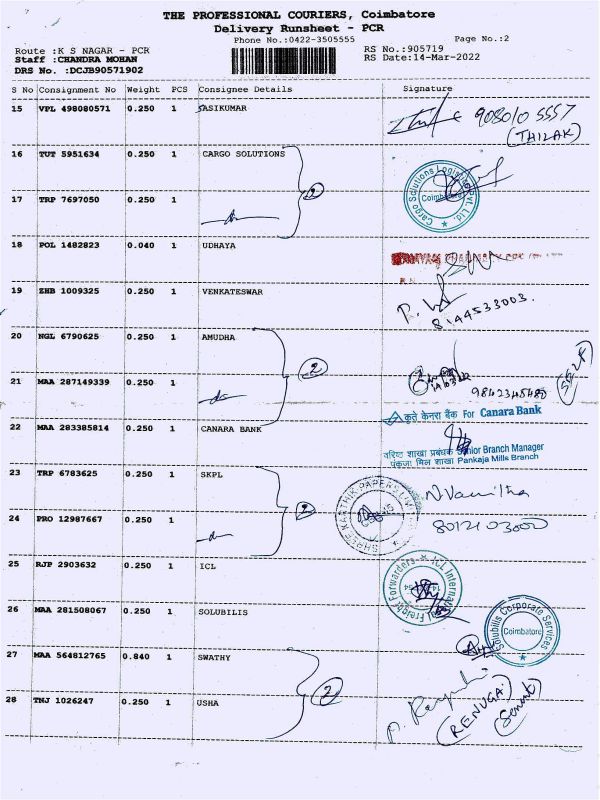 THE PROFESSIONAL COURIERS, Coimbatore
Delivery Runsheet - PCR
Phone No.:0422-3505555
Page No.:2
Route :K S NAGAR - PCR
RS No.:905719
Staff :CHANDRA MOHAN
RS Date:14-Mar-2022
DRS No. :DCJB90571902
S No Consignment No Weight PCS Consignee Details Signature
15 VPL 498080571 0.250 1 SASIKUMAR
(THILAK)
16 TUT 5951634 0.250 1 CARGO SOLUTIONS
2
Cargo Solutions Logistics Pvt. Ltd.
Coimbatore
17 TRP 7697050 0.250 1
18 POL 1482823 0.040 1 UDHAYA
19 ZHB 1009325 0.250 1 VENKATESWAR
8144533003.
20 NGL 6790625 0.250 1 AMUDHA
2
21 MAA 287149339 0.250 1
9842345480
कृते केनरा बैंक For Canara Bank
22 MAA 283385814 0.250 1 CANARA BANK
वरिष्ठ शाखा प्रबंधक Senior Branch Manager
पंकजा मिल शाखा Pankaja Mills Branch
23 TRP 6783625 0.250 1 SKPL
2
SHREE KARTHIK PAPERS
N. Vanitha
24 PRO 12987667 0.250 1
25 RJP 2903632 0.250 1 ICL
ICL International Freight Forwarders
26 MAA 281508067 0.250 1 SOLUBILIS
Solubilis Corporate Services
Coimbatore
27 MAA 564812765 0.840 1 SWATHY
2
28 TNJ 1026247 0.250 1 USHA
(RENUGA)